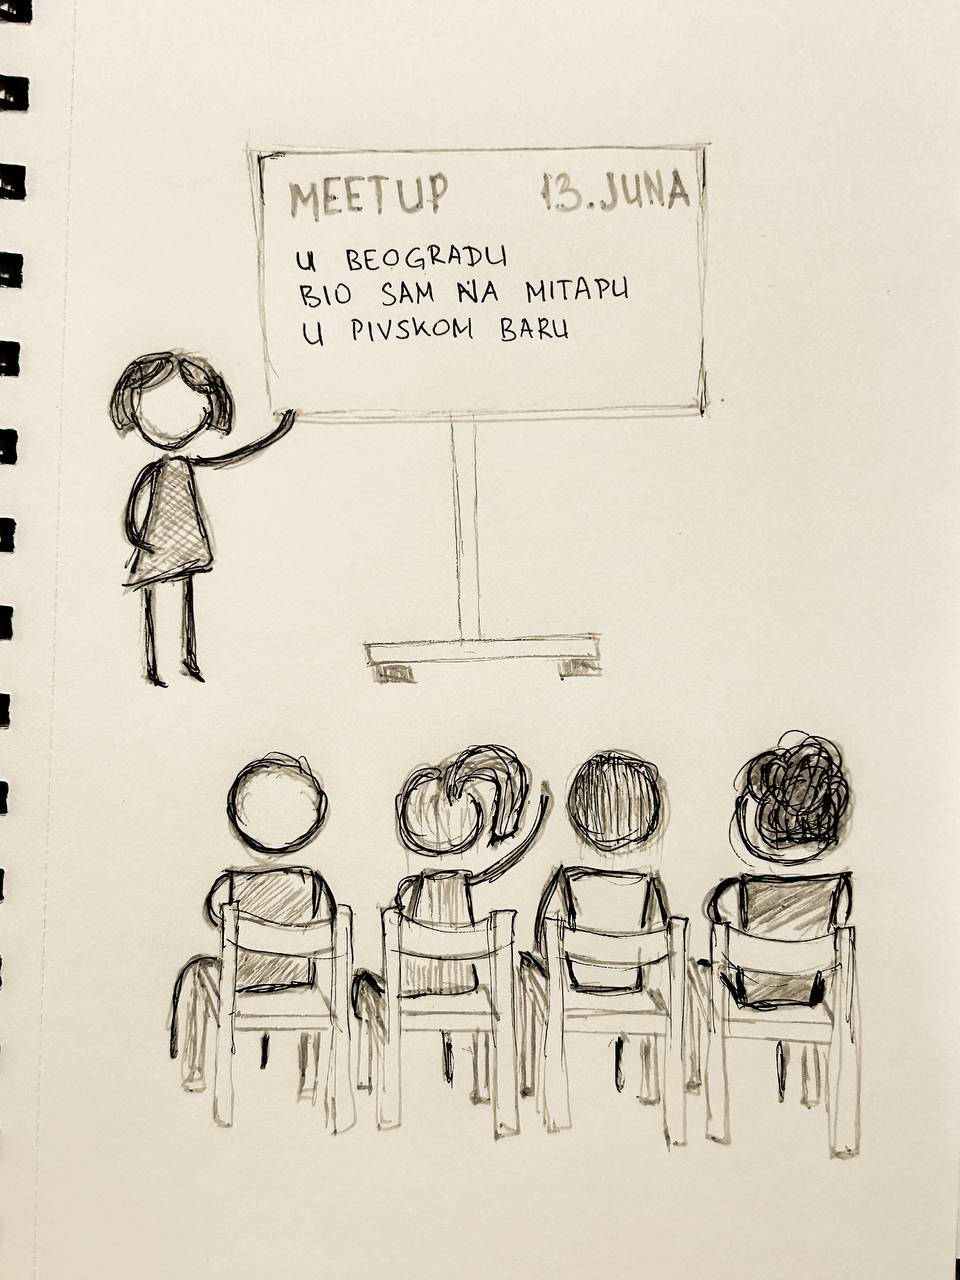 MEETUP 13.JUNA
U BEOGRADU
BIO SAM NA MITAPU
U PIVSKOM BARU